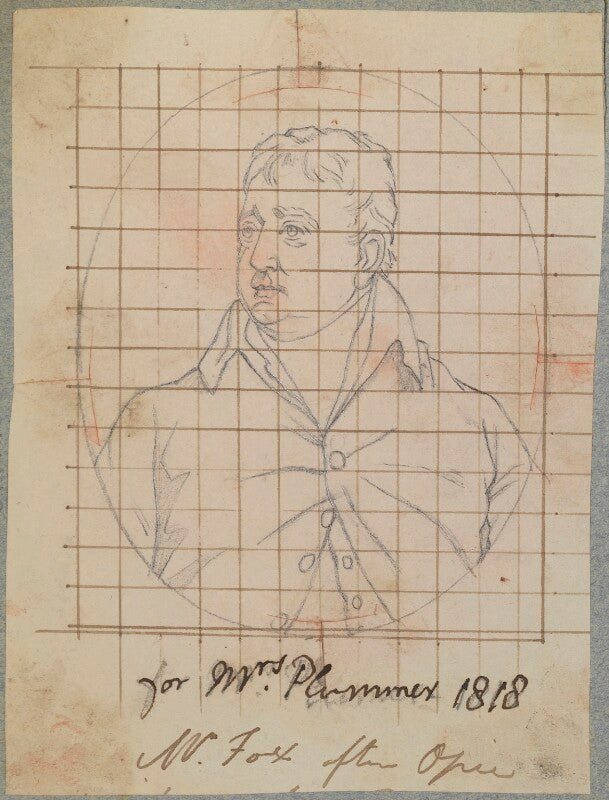 for Mrs. Plummer 1818
Mr. Fox after Opie